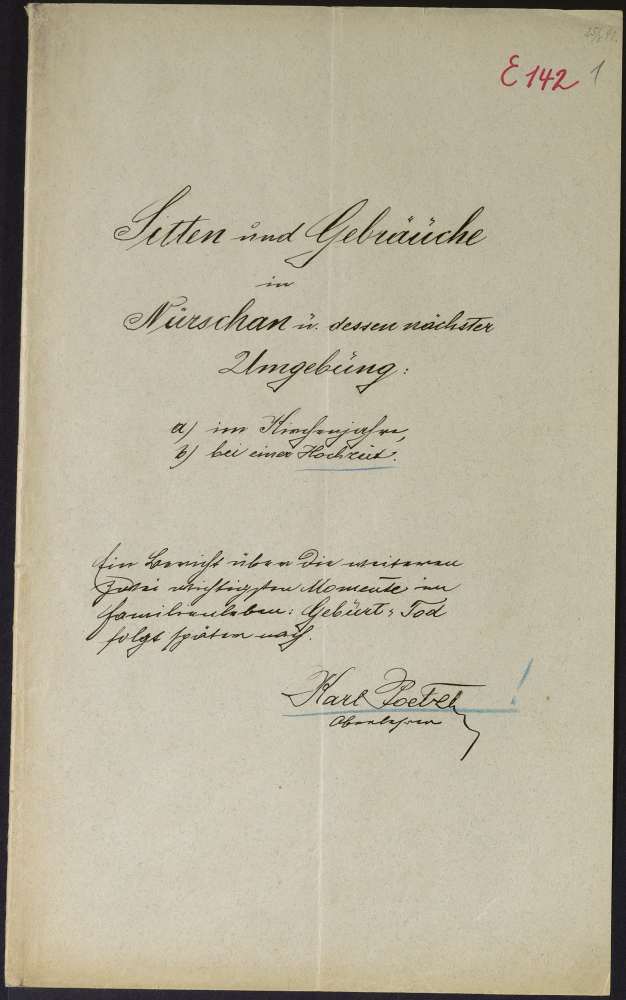 E 142 1
Sitten und Gebräuche
in
Nürschan u. dessen nächster
Umgebung:
a) im Kirchenjahre,
b) bei einer Hochzeit.
Ein Bericht über die weiteren
zwei wichtigsten Momente im
Familienleben: Geburt u. Tod
folgt später nach.
Karl
Oberlehrer